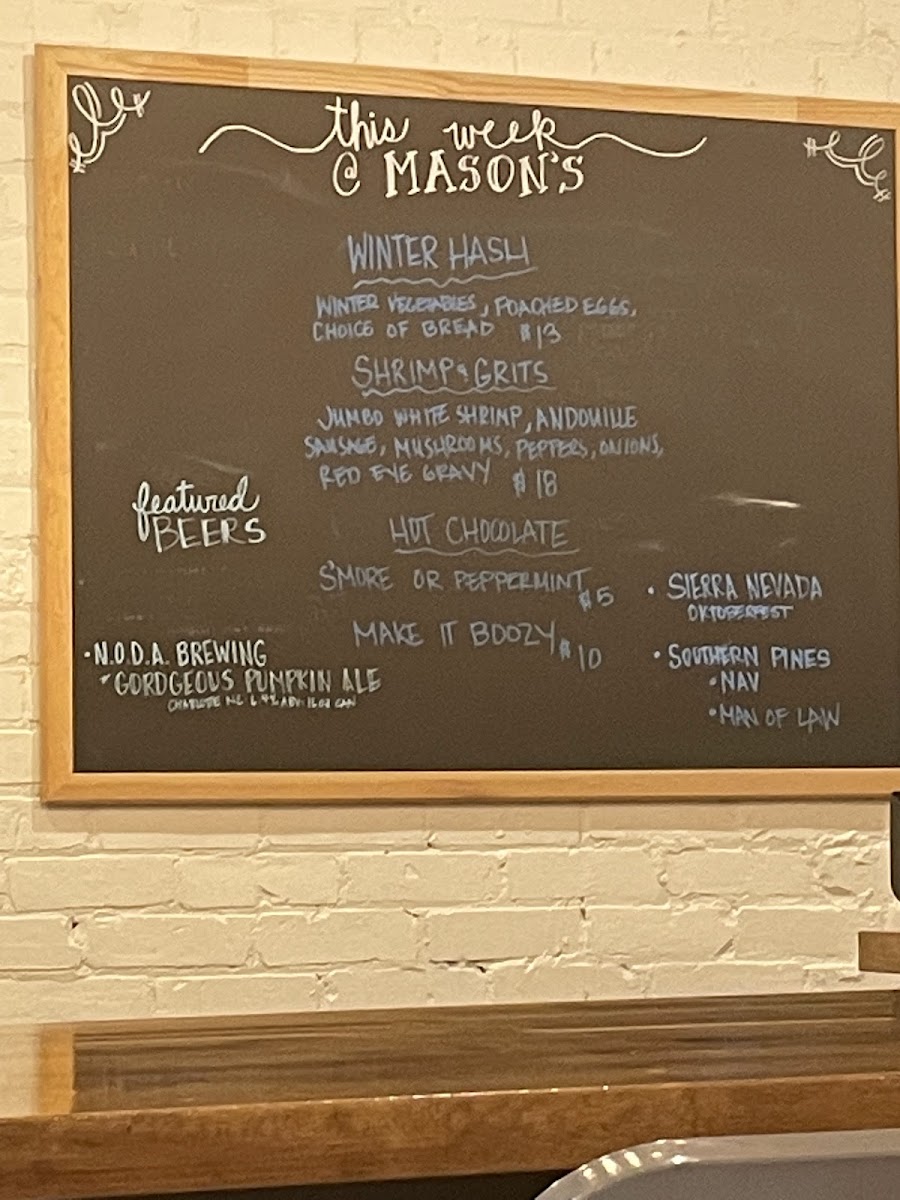 this week
@ MASON'S
WINTER HASH
WINTER VEGETABLES, POACHED EGGS,
CHOICE OF BREAD $13
SHRIMP & GRITS
JUMBO WHITE SHRIMP, ANDOUILLE
SAUSAGE, MUSHROOMS, PEPPERS, ONIONS,
RED EYE GRAVY $18
HOT CHOCOLATE
S'MORE OR PEPPERMINT $5
MAKE IT BOOZY $10
featured
BEERS
• N.O.D.A. BREWING
• GORDGEOUS PUMPKIN ALE
CHARLOTTE NC ABV 16 OZ CAN
• SIERRA NEVADA
OKTOBERFEST
• SOUTHERN PINES
• NAV
• MAN OF LAW